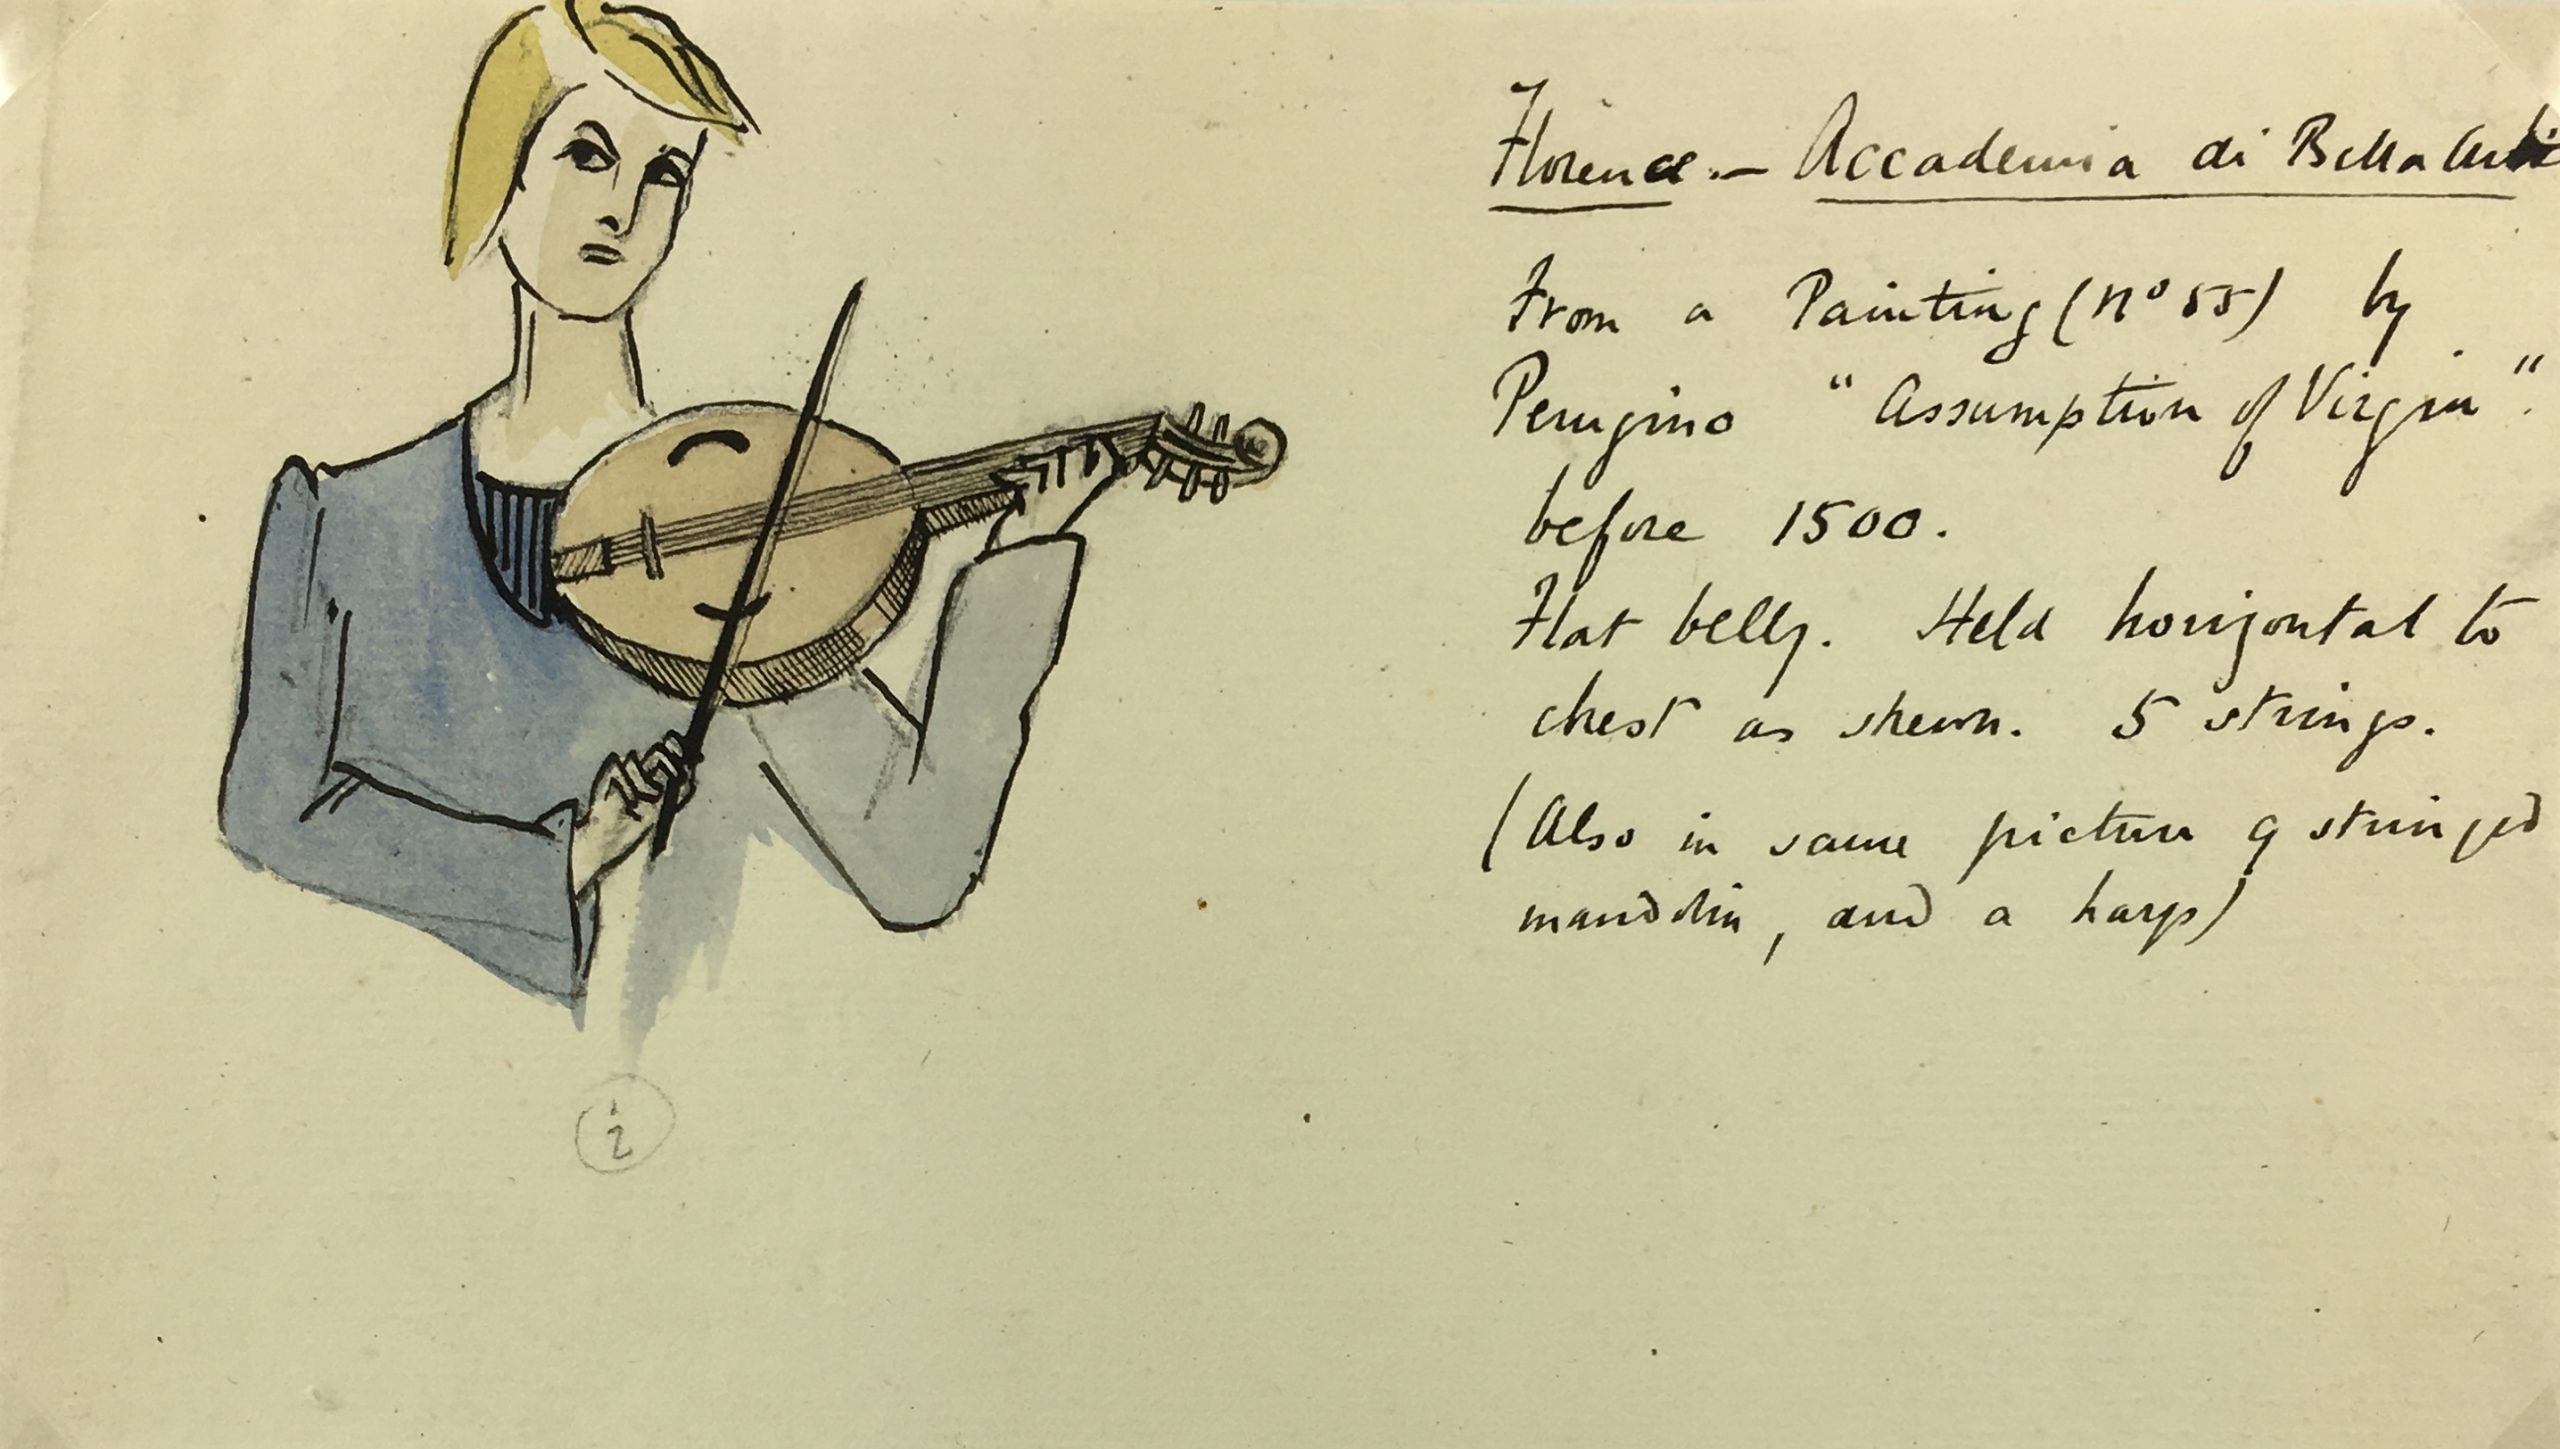 Florence - Accademia di Bella Arti
From a Painting (nº 55) by
Perugino "Assumption of Virgin".
before 1500.
Flat belly. Held horizontal to
chest as shewn. 5 strings.
(Also in same picture 9 stringed
mandolin, and a harp)
2